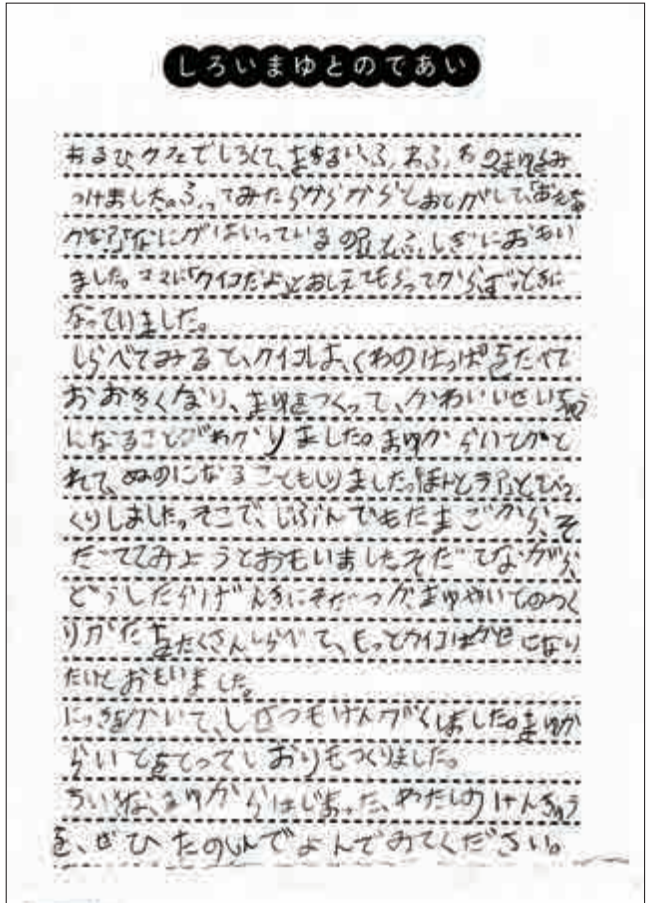 しろいまゆとのであい
あるひ、カフェでしろくて、まあるい、ふ、わふ、わのまゆをみ
つけました。ふってみたらからからとおとがして、「おもちゃ
かな?なにがはいっているの?」とふしぎにおもい
ました。ママに「カイコだよ」とおしえてもらってから、ずっときに
なっていました。
しらべてみると、カイコは、くわのはっぱをたべて
おおきくなり、まゆをつくって、かわいいせいちゅう
になることがわかりました。まゆからいとがと
れて、ぬのになることもしりました。「ほんとう?」とびっ
くりしました。そこで、じぶんでもたまごから、そ
だててみようとおもいました。そだてながら、
どうしたらげんきにそだつか、まゆやいとのつく
りかたをたくさんしらべて、もっとカイコはかせになり
たいとおもいました。
にっきをかいて、しせつもけんがくしました。まゆか
らいとをとってしおりもつくりました。
ちいさな、まゆからはじまった、わたしのけんきゅう
を、ぜひたのしんでよんでみてください。